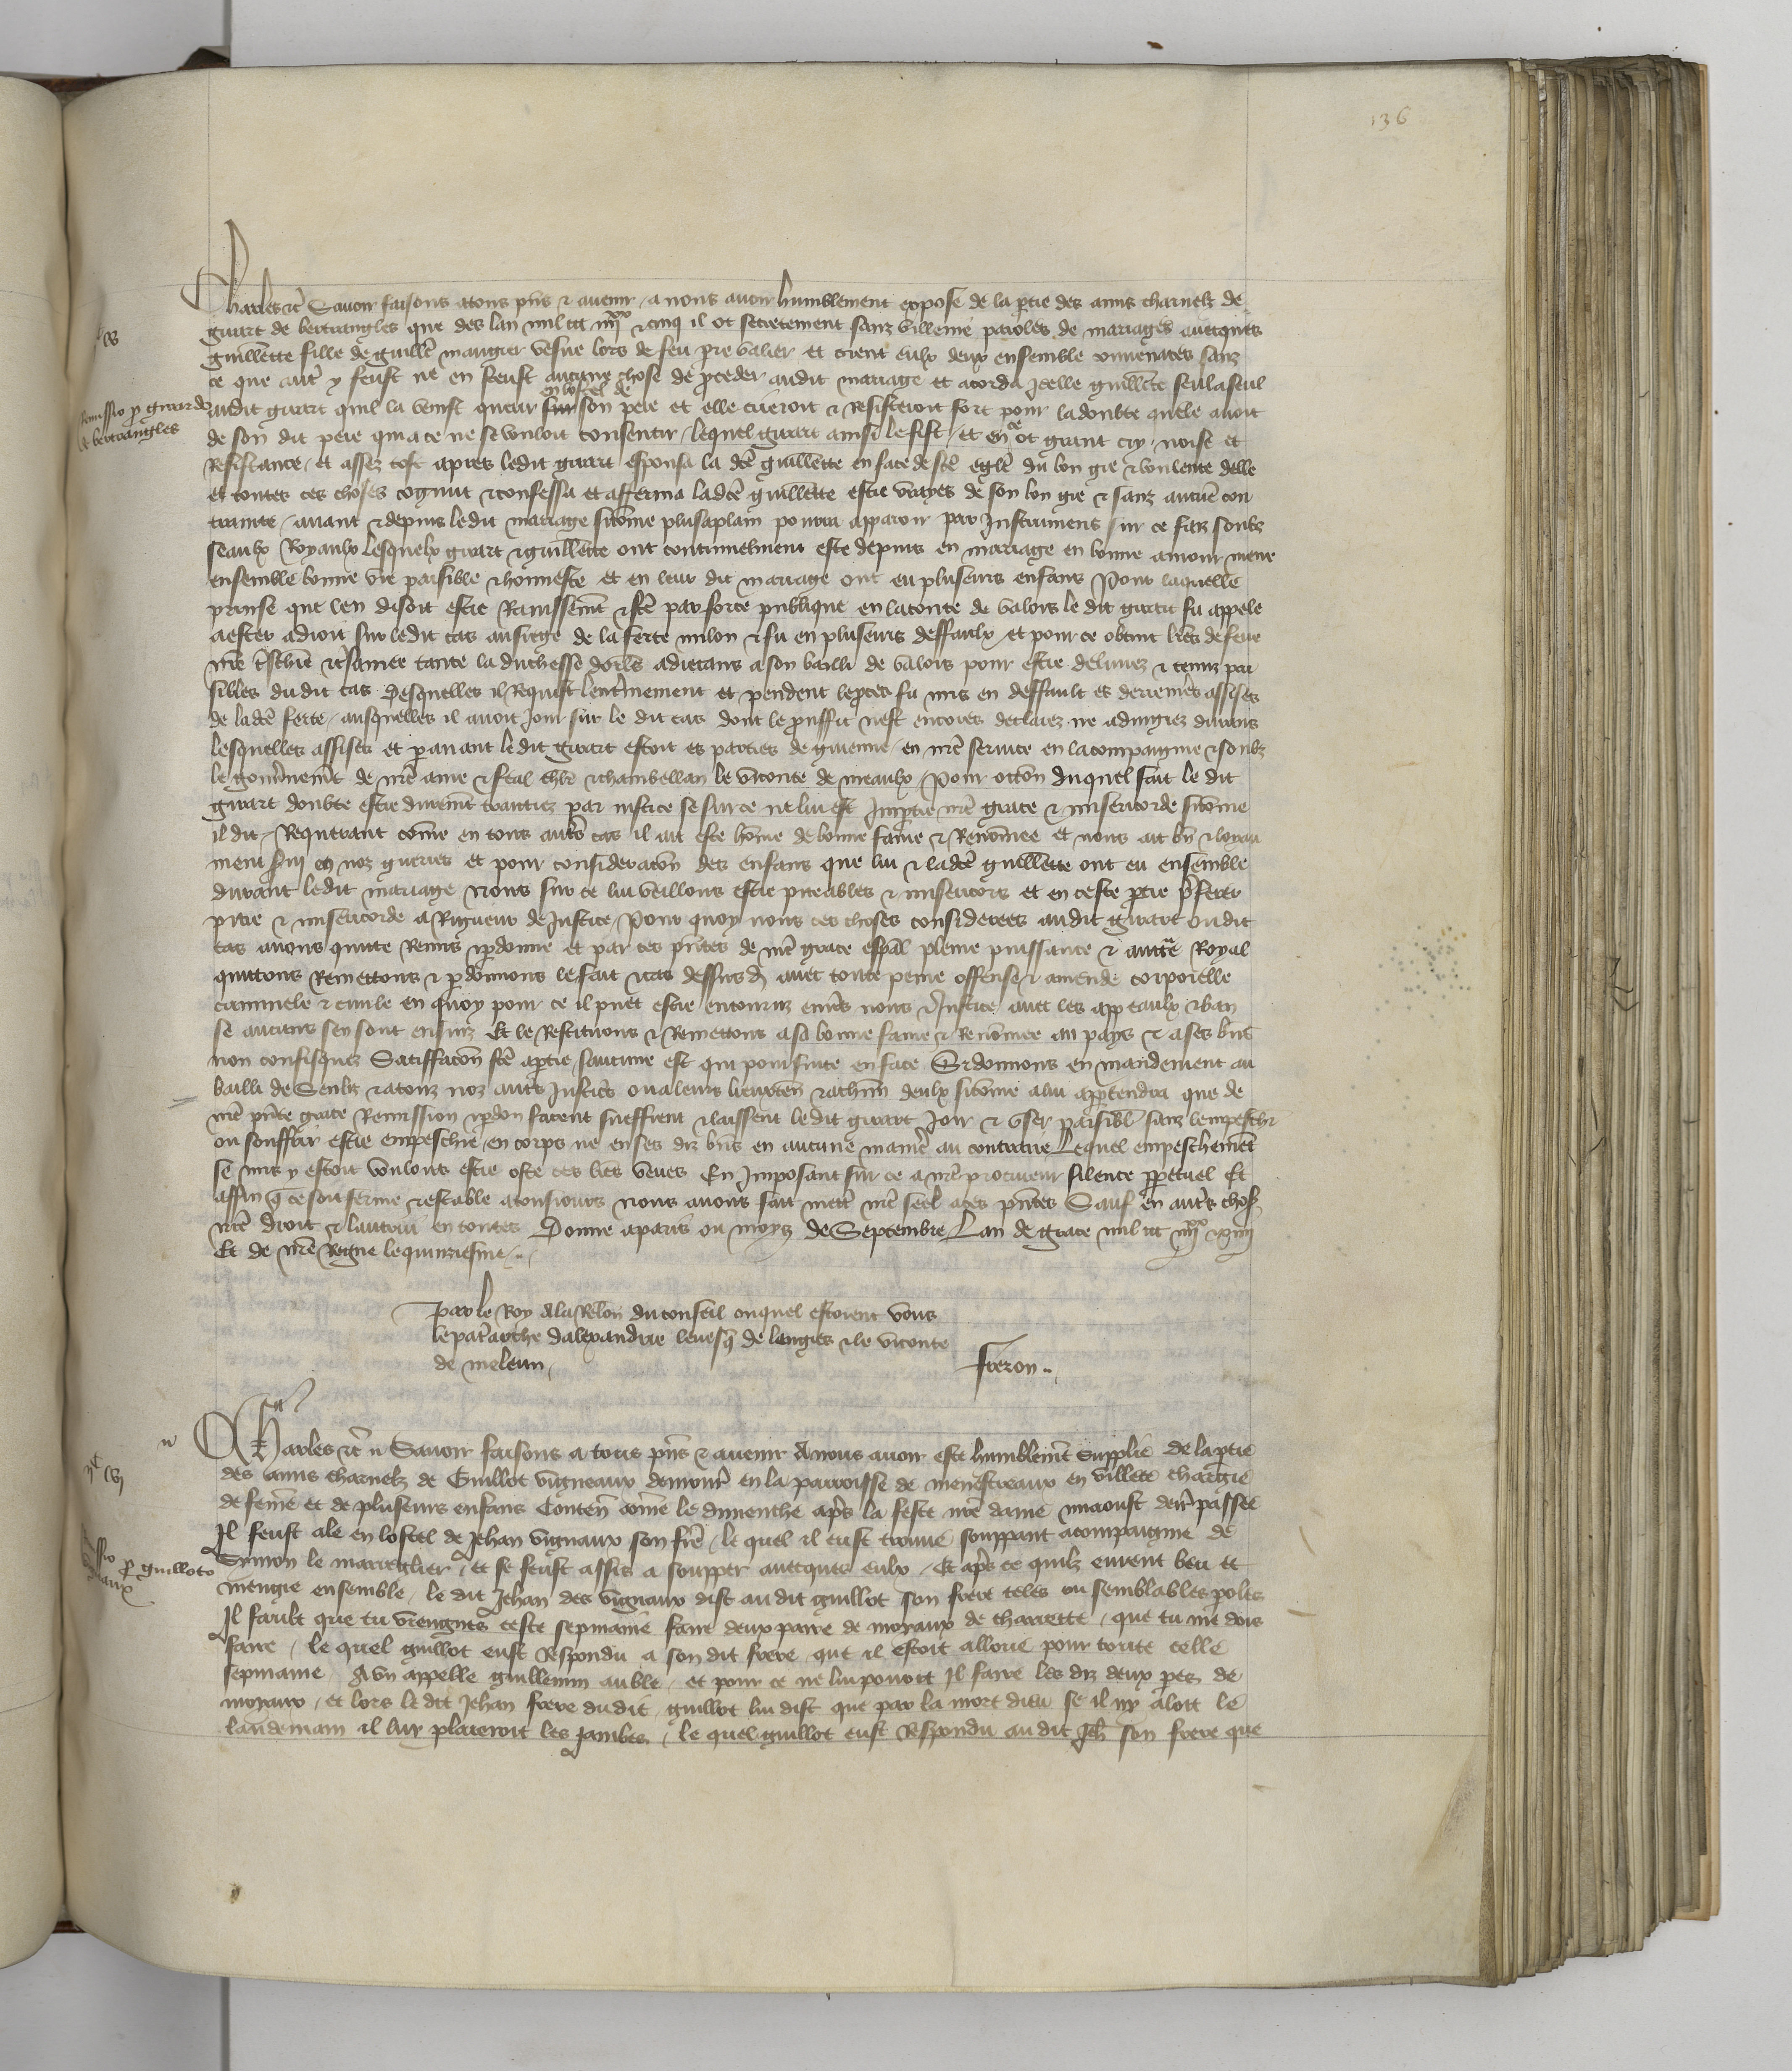 136
Charles etc Savoir faisons a tous pns & avenir a nous avoir humblement expose de la ptie des amis charnelz de
girart de bertrangles que des lan mil ccc iiiixx & cinq il ot secretement sanz villenie paroles de mariages avecques
guillete fille de guillẽ maugier vesve lors de feu pre valier et eurent eulx deux ensemble convenances sanz
ce que autr y feust ne en sceust aucune chose de pceder audit mariage et acorda Icelle guillete seul a seul
audit girart quil la venist querir en lostel de son pere et elle crieroit & Resisteroit fort pour la doubte quele avoit
de son dit pere qui a ce ne se vouloit consentir / lequel girart ainsi le fist / et en ce ot grant cry / noise et
Resistance / et assez tost apres ledit girart espousa la dce guillete en face de ste eglẽ du bon gre & voulente delle
et toutes ces choses cogneut & confessa et afferma ladce guillete estre vrayes de son bon gre & sanz aucue con
trainte / avant & depuis ledit mariage sicõme plus a plain pourra apparoir par Instrumens sur ce faiz soubz
seaulx Royaulx lesquelx girart & guillete ont continuelment este depuis en mariage en bonne amour mene
ensemble bonne vie paisible & honneste et en leur dit mariage ont eu pluseurs enfans Pour laquelle
prinse que len disoit estre Ravissemt & fce par force publique en la conte de valois le dit girart fu appele
a ester a droit sur ledit cas au siege de la ferte milon & fu en pluseurs deffaulx et pour ce obtint lres de feue
nre tresche & tresamee tante la duchesse dorlẽs adrecans a son bailli de valois pour estre delivrez & tenuz pai
sibles dudit cas Desquelles il Requist lenterinement et pendent le pces fu mis en deffault es derrenieres assises
de ladce ferte / ausquelles il avoit Jour sur le dit cas dont le prouffit nest encores declairez ne adiugiez durans
lesquelles assises et pavant le dit girart estoit es parties de guienne / en nre service en la compaignie & soubz
le gouvnemẽt de nre ame & feal chlr & chambellan le viconte de meaulx / Pour occõn duquel fait le dit
girart doubte estre durement traittiez par iustice se sur ce ne lui est Impartie nre grace & misericorde sicõme
il dit / Requerant cõme en tous autrs cas il ait este hõme de bonne fame & Renõmee et nous ait bn & loyau
ment servi en noz guerres et pour consideracõn des enfans que lui & ladce guillete ont eu ensemble
durant ledit mariage nous sur ce lui veillons estre piteables & misericors et en ceste ptie pferer
pitie & misericorde a Rigueur de Justice / Pour quoy nous ces choses considerees audit girart ou dit
cas avons quitte Remis & pdonne et par ces pntes de nre grace espãl pleine puissance & auctẽ Royal
quittons Remettons & pdonnons le fait & cas dessus d avec toute peine offense & amende corporelle
criminele & civile en quoy pour ce il puet estre encouruz envers nous & Justice avec les appeaulx & ban
se aucuns sen sont ensuiz Et le Restituons & Remettons a sa bonne fame & Renõmee au pays & a ses bns
non confisquez Satisfacõn fce a ptie saucune est qui poursuite en face Si donnons en mandement au
bailli de Senlis & a touz noz autrs Justicrs ou a leurs lieuxten & a chun deulx sicõme a lui appendra que de
nre pnte grace Remission & pdon facent sueffrent & laissent le dit girart Joir & user paisiblẽ sanz lempeschr
ou souffrir estre empeschie / en corps ne en ses diz bns en aucune manie au contraire Lequel empeschement
se mis y estoit voulons estre oste ces lres veues En Imposant sur ce a nre procureur silence ppetuel Et
affin q ce soit ferme & estable a tousiours nous avons fait mettr nre seel a ces pntes Sauf en autrs chos
nre droit & lautrui en toutes Donne a paris ou moys de Septembre Lan de grace mil ccc iiiixx & xiiii
Et de nre Regne le quinziesme ..
par le Roy A la Relon du conseil ouquel estoient vous
le patriarche dalexandrie levesq de lengres & le viconte
de meleun /
freron ..
Remissio p girardo
de bertrangles
Charles etc Savoir faisons a tous pns & avenir A nous avoir este humblemt supplie de la ptie
des amis charnelz de Guillot vigneaux demourr en la parroisse de menestreaux en villete chargie
de feme et de pluseurs enfans Conten cõme le dimenche aprs la feste nre dame mi aoust derr passee
Il feust ale en lostel de Jehan vignaux son frẽ / le quel il eust trouve souppant acompaigne de
Symon le marreglier / et se feust assis a soupper avecques eulx / Et aprs ce quilz eurent beu et
mengie ensemble / le dit Jehan des vignaux dist au dit guillot son frere teles ou semblables poles
Il fault que tu viengnes ceste sepmaine faire deux paire de moyaux de charrette / que tu me dois
faire / le quel guillot eust Respondu a son dit frere que il estoit alloue pour toute celle
sepmaine A un appelle guillemin auble / et pour ce ne lui pouoit Il faire les diz deux pres de
moyaux / et lors le dit Jehan frere du dit guillot lui dist que par la mort dieu se il ny aloit le
landemain il luy placeroit les Jambes / le quel guillot eust Respondu au dit Jeh son frere que
Remissio p guilloto
vignaux